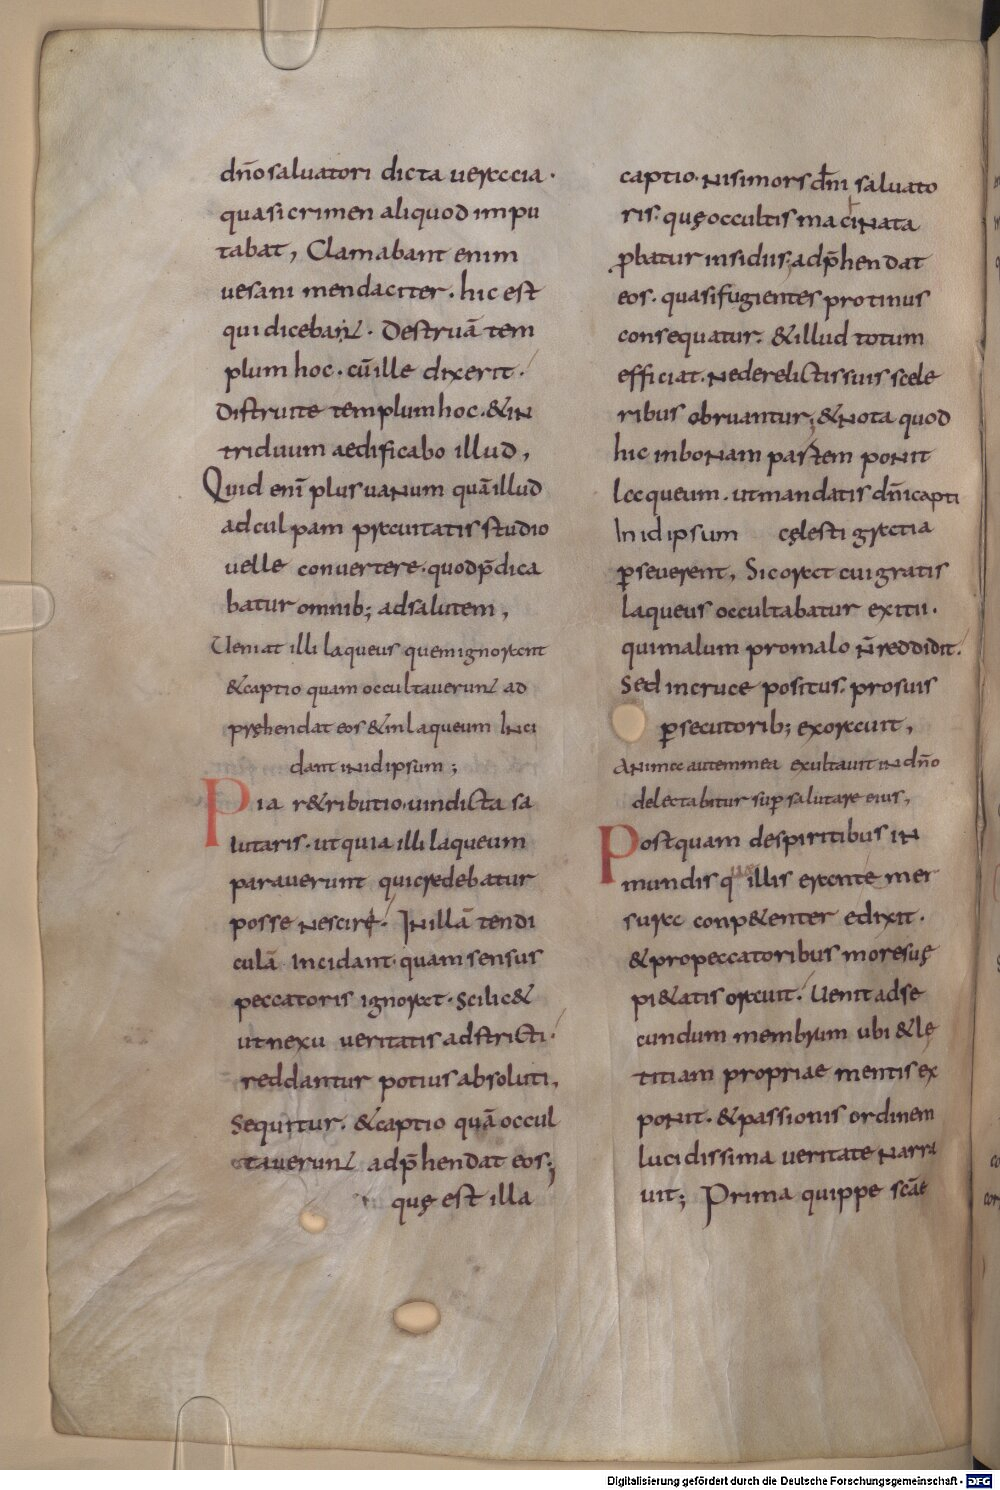 dño saluatori dicta ueracia.
quasi crimen aliquod impu
tabat, Clamabant enim
uesani mendaciter. hic est
qui dicebant. Destruā tem
plum hoc. cū ille dixerit.
Distruite templum hoc. & in
triduum aedificabo illud,
Quid enī plus uanum quā illud
ad culpam prauitatis studio
uelle conuertere. quod p̄dica
batur omnib; ad salutem,
Ueniat illi laqueus quem ignorant
& captio quam occultauerunt ad
pręhendat eos & in laqueum inci
dant in id ipsum;
Pia r&ributio. uindicta sa
lutaris. ut quia illi laqueum
parauerunt qui credebatur
posse nescire. In illā tendi
culā incidant. quam sensus
peccatoris ignorat. Scilic&
ut nexu ueritatis adstricti.
reddantur potius absoluti,
Sequitur. & captio quā occul
tauerunt adp̄hendat eos;
quę est illa
captio. nisi mors dñi saluato
ris. quę occultis macinata
ꝓbatur insidiis. adp̄hendat
eos. quasi fugientes protinus
consequatur. & illud totum
efficiat. ne derelictis suis scele
ribus obruantur; & nota quod
hic in bonam partem ponit
laqueum. ut mandatis dñi capti
In id ipsum cęlesti gratia
ꝑseuerent, Sic orat cui gratis
laqueus occultabatur exitii.
qui malum pro malo ñ reddidit.
Sed in cruce positus. pro suis
ꝑsecutorib; exorauit,
Anima autem mea exultauit in dño
delectabitur suꝑ salutare eius,
Postquam de spiritibus in
mundis qua illis erant e mer
sura conp&enter edixit.
& pro peccatoribus more suę
pi&atis orauit. Uenit ad se
cundum membrum ubi & lę
titiam propriae mentis ex
ponit. & passionis ordinem
lucidissima ueritate narra
uit; Prima quippe scāe
Digitalisierung gefördert durch die Deutsche Forschungsgemeinschaft - DFG